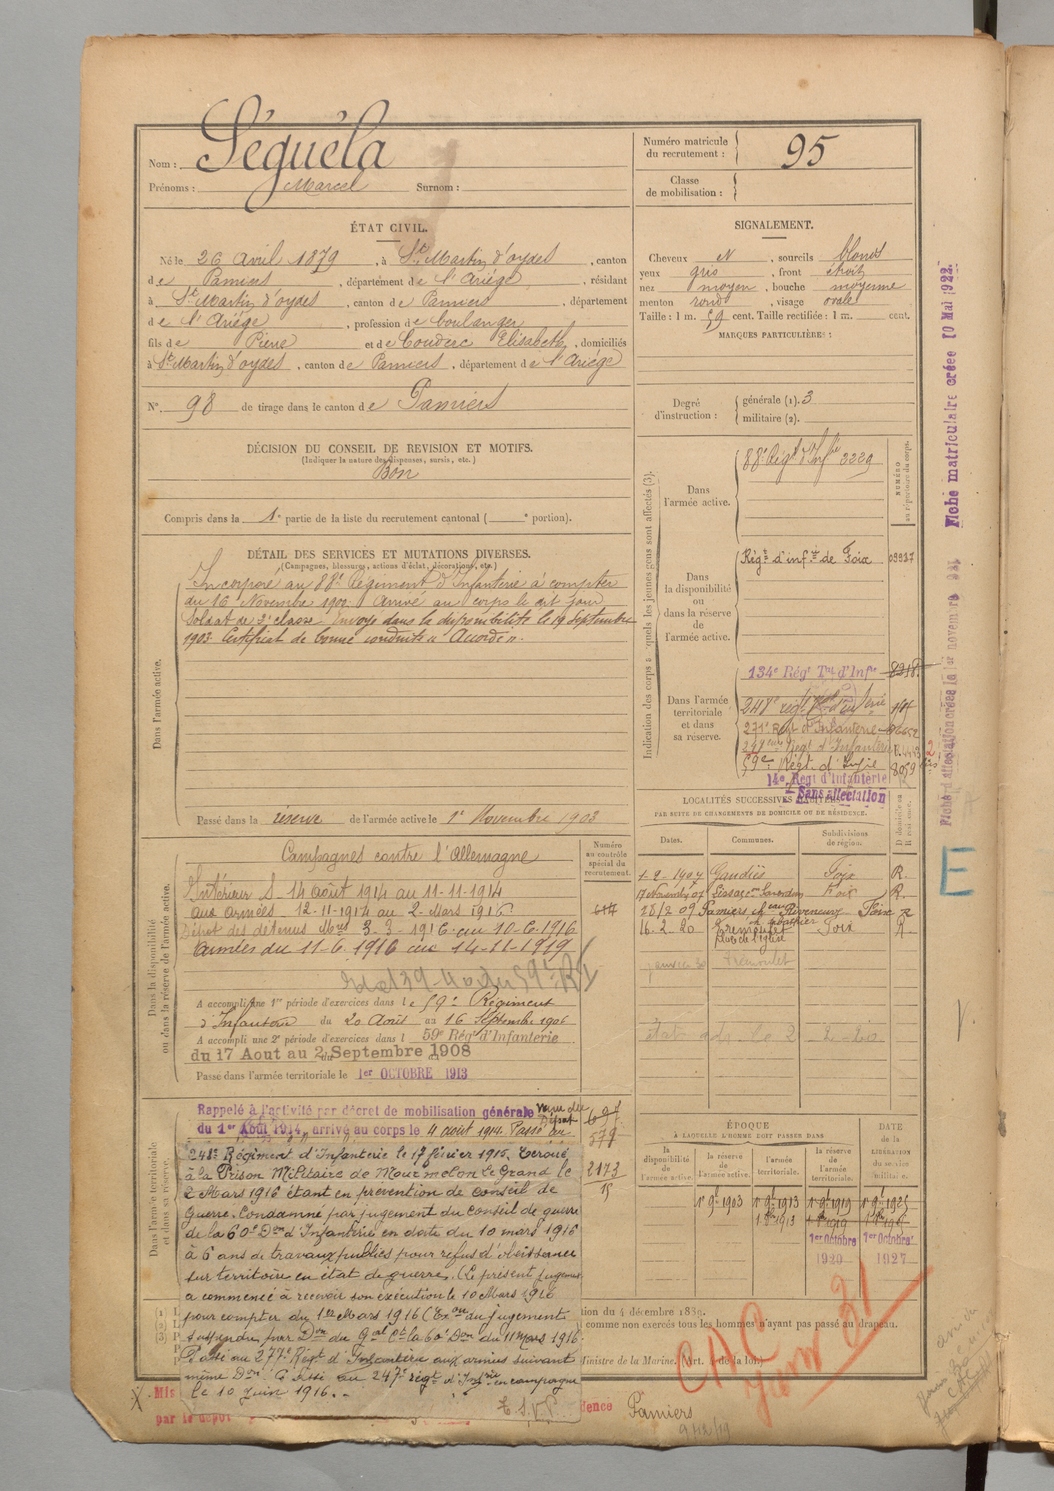 Nom : Séguéla
Prénoms : Marcel Surnom :
Numéro matricule du recrutement : 95
Classe de mobilisation :
ÉTAT CIVIL.
Né le 26 avril 1879, à St Martin d'oydes, canton
de Pamiers, département de l'Ariége, résidant
à St Martin d'oydes, canton de Pamiers, département
de l'Ariége, profession de boulanger
fils de Pierre et de Couderc Elisabeth, domiciliés
à St Martin d'oydes, canton de Pamiers, département de l'Ariége
N° 98 de tirage dans le canton de Pamiers
SIGNALEMENT.
Cheveux N, sourcils blonds
yeux gris, front étroit
nez moyen, bouche moyenne
menton rond, visage ovale
Taille : 1 m. 59 cent. Taille rectifiée : 1 m. cent.
MARQUES PARTICULIÈRES :
Degré d'instruction : générale (1). 3
militaire (2).
DÉCISION DU CONSEIL DE REVISION ET MOTIFS.
(Indiquer la nature des dispenses, sursis, etc.)
Bon
Compris dans la 1e partie de la liste du recrutement cantonal ( e portion).
DÉTAIL DES SERVICES ET MUTATIONS DIVERSES.
(Campagnes, blessures, actions d'éclat, décorations, etc.)
Dans l'armée active.
Incorporé au 88e Régiment d'Infanterie à compter
du 16 Novembre 1900. Arrivé au corps le dit jour
Soldat de 2e classe. Envoyé dans la disponibilité le 19 Septembre
1903. Certificat de bonne conduite "Accordé".
Passé dans la réserve de l'armée active le 1er Novembre 1903
Indication des corps auxquels les jeunes gens sont affectés (3).
NUMÉRO au répertoire du corps.
Dans l'armée active.
88e Régt d'Infie 3229
Dans la disponibilité ou dans la réserve de l'armée active.
Régt d'infie de Foix 03927
Dans l'armée territoriale et dans sa réserve.
134e Régt Tal d'Infie
271e Rgt d'Infanterie
Régt d'Infanterie
59e Régt d'Infie 8059
14e Régt d'Infanterie
Sans affectation
LOCALITÉS SUCCESSIVES HABITÉES
PAR SUITE DE CHANGEMENTS DE DOMICILE OU DE RÉSIDENCE.
Dates. Communes. Subdivisions de région.
1-2-1907 Gaudiès Foix R.
17 Novembre 07 Foix R.
28/2 09 Pamiers Foix R
16-2-20 Trémoulet Foix R.
Dans la disponibilité ou dans la réserve de l'armée active.
Campagnes contre l'Allemagne
Numéro au contrôle spécial du recrutement.
Intérieur S 14 août 1914 au 11-11-1914
aux armées 12-11-1914 au 2-Mars 1916
Dépot des détenus 3-3-1916 au 10-6-1916
armées du 11-6-1916 au 14-11-1919
A accompli une 1re période d'exercices dans le 59e Régiment
d'Infanterie du 20 Août au 16 Septembre 1906
A accompli une 2e période d'exercices dans l 59e Rég d'Infanterie
du 17 Aout au 2 Septembre 1908
Passé dans l'armée territoriale le 1er OCTOBRE 1913
Dans l'armée territoriale et dans sa réserve.
Rappelé à l'activité par décret de mobilisation générale
du 1er Août 1914, arrivé au corps le 4 août 1914. Passé au
248e Régiment d'Infanterie le 17 février 1915. Ecroué
à la Prison Militaire de Mourmelon le Grand le
2 Mars 1916 étant en prévention de Conseil de
Guerre. Condamné par jugement du conseil de guerre
de la 60e Don d'Infanterie en date du 10 mars 1916
à 6 ans de travaux publics pour refus d'obéissance
sur territoire en état de guerre. (Le présent jugement
a commencé à recevoir son exécution le 10 Mars 1916
pour compter du 1er Mars 1916 (Exon du jugement
suspendu par Don du Gal Ct la 60e Don du 11 mars 1916
Passé au 277e Régt d'Infanterie aux armées suivant
même Don. Passé au 247e régt d'Infrie en campagne
le 10 Juin 1916.
T.S.V.P.
ÉPOQUE
À LAQUELLE L'HOMME DOIT PASSER DANS
la disponibilité de l'armée active. la réserve de l'armée active. l'armée territoriale. la réserve de l'armée territoriale.
DATE de la LIBÉRATION du service militaire.
1er 9bre 1903 1er 9bre 1913 1er 9bre 1919 1er 9bre 1925
1er Octobre 1920 1er Octobre 1927
tion du 4 décembre 1889.
comme non exercés tous les hommes n'ayant pas passé au drapeau.
Ministre de la Marine. (Art. 4 de la loi.)
Pamiers
9/12/19
par le dépôt
Fiche matriculaire créée 10 Mai 1922.
Fiche d'affectation créée le 1er novembre
E